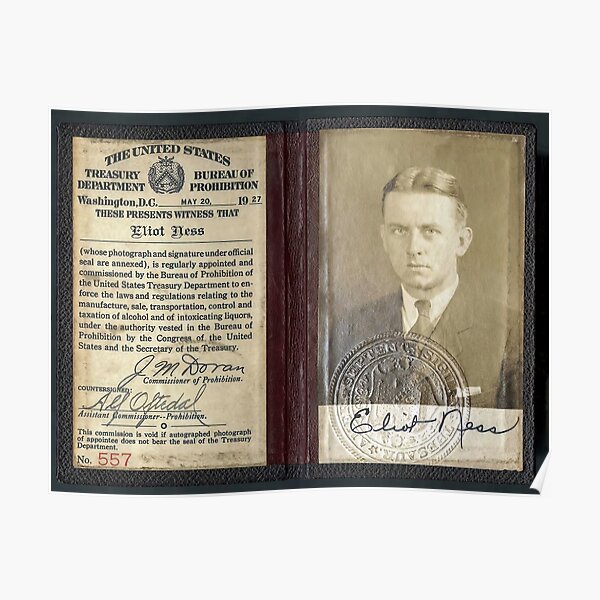 THE UNITED STATES
TREASURY BUREAU OF
DEPARTMENT PROHIBITION
Washington, D.C. MAY 20, 1927
THESE PRESENTS WITNESS THAT
Eliot Ness
(whose photograph and signature under official
seal are annexed), is regularly appointed and
commissioned by the Bureau of Prohibition of
the United States Treasury Department to en-
force the laws and regulations relating to the
manufacture, sale, transportation, control and
taxation of alcohol and of intoxicating liquors,
under the authority vested in the Bureau of
Prohibition by the Congress of the United
States and the Secretary of the Treasury.
J. M. Doran
Commissioner of Prohibition.
COUNTERSIGNED:
Alf Oftedal
Assistant Commissioner--Prohibition.
This commission is void if autographed photograph
of appointee does not bear the seal of the Treasury
Department.
No. 557
Eliot Ness